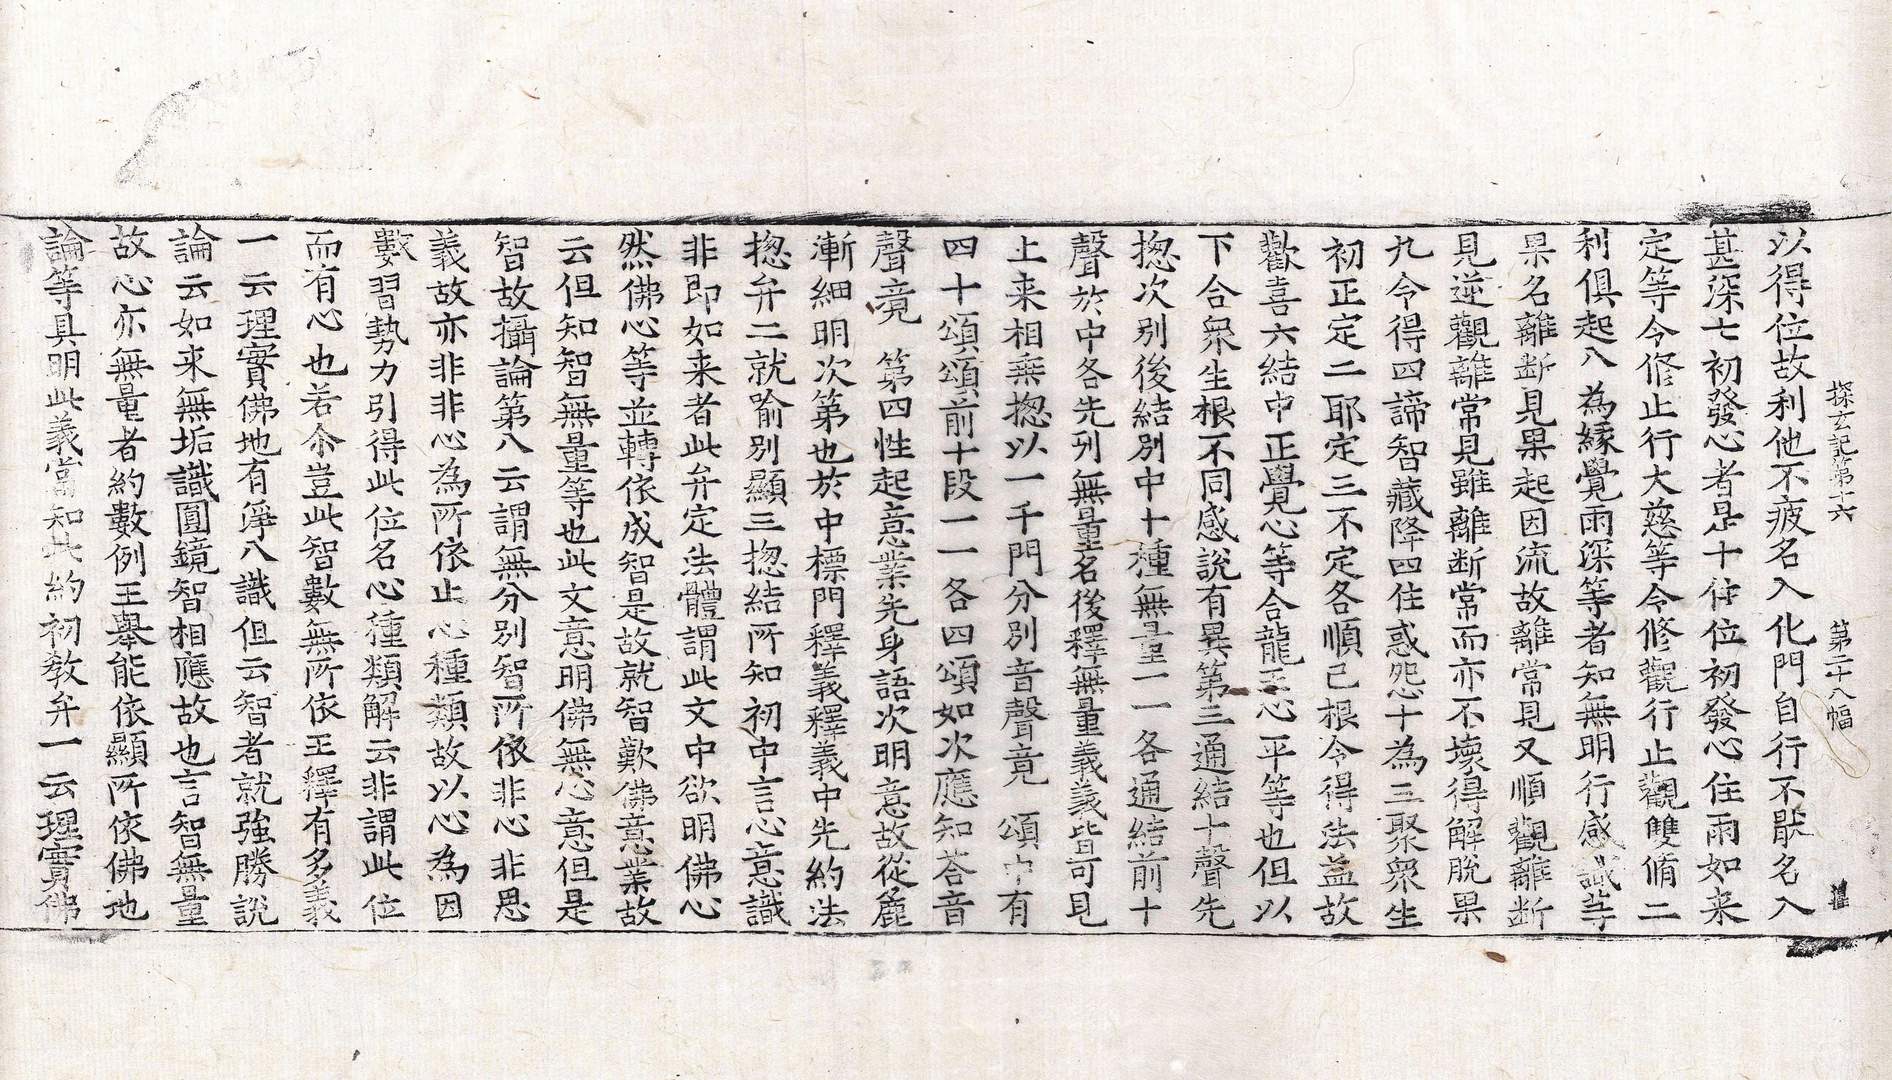 探玄記第十六　第二十八幅
以得位故利他不疲名入化門自行不猒名入
甚深七初發心者是十住位初發心住雨如来
定等令修止行大慈等令修觀行止觀雙脩二
利俱起八為緣覺雨深等者知無明行感識等
果名離断見果起因流故離常見又順觀離断
見逆觀離常見雖離断常而亦不壞得解脫果
九令得四諦智藏降四住惑怨十為三聚衆生
初正定二耶定三不定各順己根令得法益故
歡喜六結中正覺心等合龍王心平等也但以
下合衆生根不同感說有異第三通結十聲先
揔次別後結別中十種無量一一各通結前十
聲於中各先列無量名後釋無量義義皆可見
上来相乗揔以一千門分別音聲竟　頌中有
四十頌頌前十段一一各四頌如次應知荅音
聲竟　第四性起意業先身語次明意故從麁
漸細明次第也於中標門釋義釋義中先約法
揔弁二就喻別顯三揔結所知初中言心意識
非即如来者此弁定法體謂此文中欲明佛心
然佛心等並轉依成智是故就智歎佛意業故
云但知智無量等也此文意明佛無心意但是
智故攝論第八云謂無分別智所依非心非思
義故亦非非心為所依止心種類故以心為因
數習勢力引得此位名心種類解云非謂此位
而有心也若尒豈此智數無所依王釋有多義
一云理實佛地有淨八識但云智者就強勝說
論云如来無垢識圓鏡智相應故也言智無量
故心亦無量者約數例王舉能依顯所依佛地
論等具明此義當知此約初敎弁一云理實佛